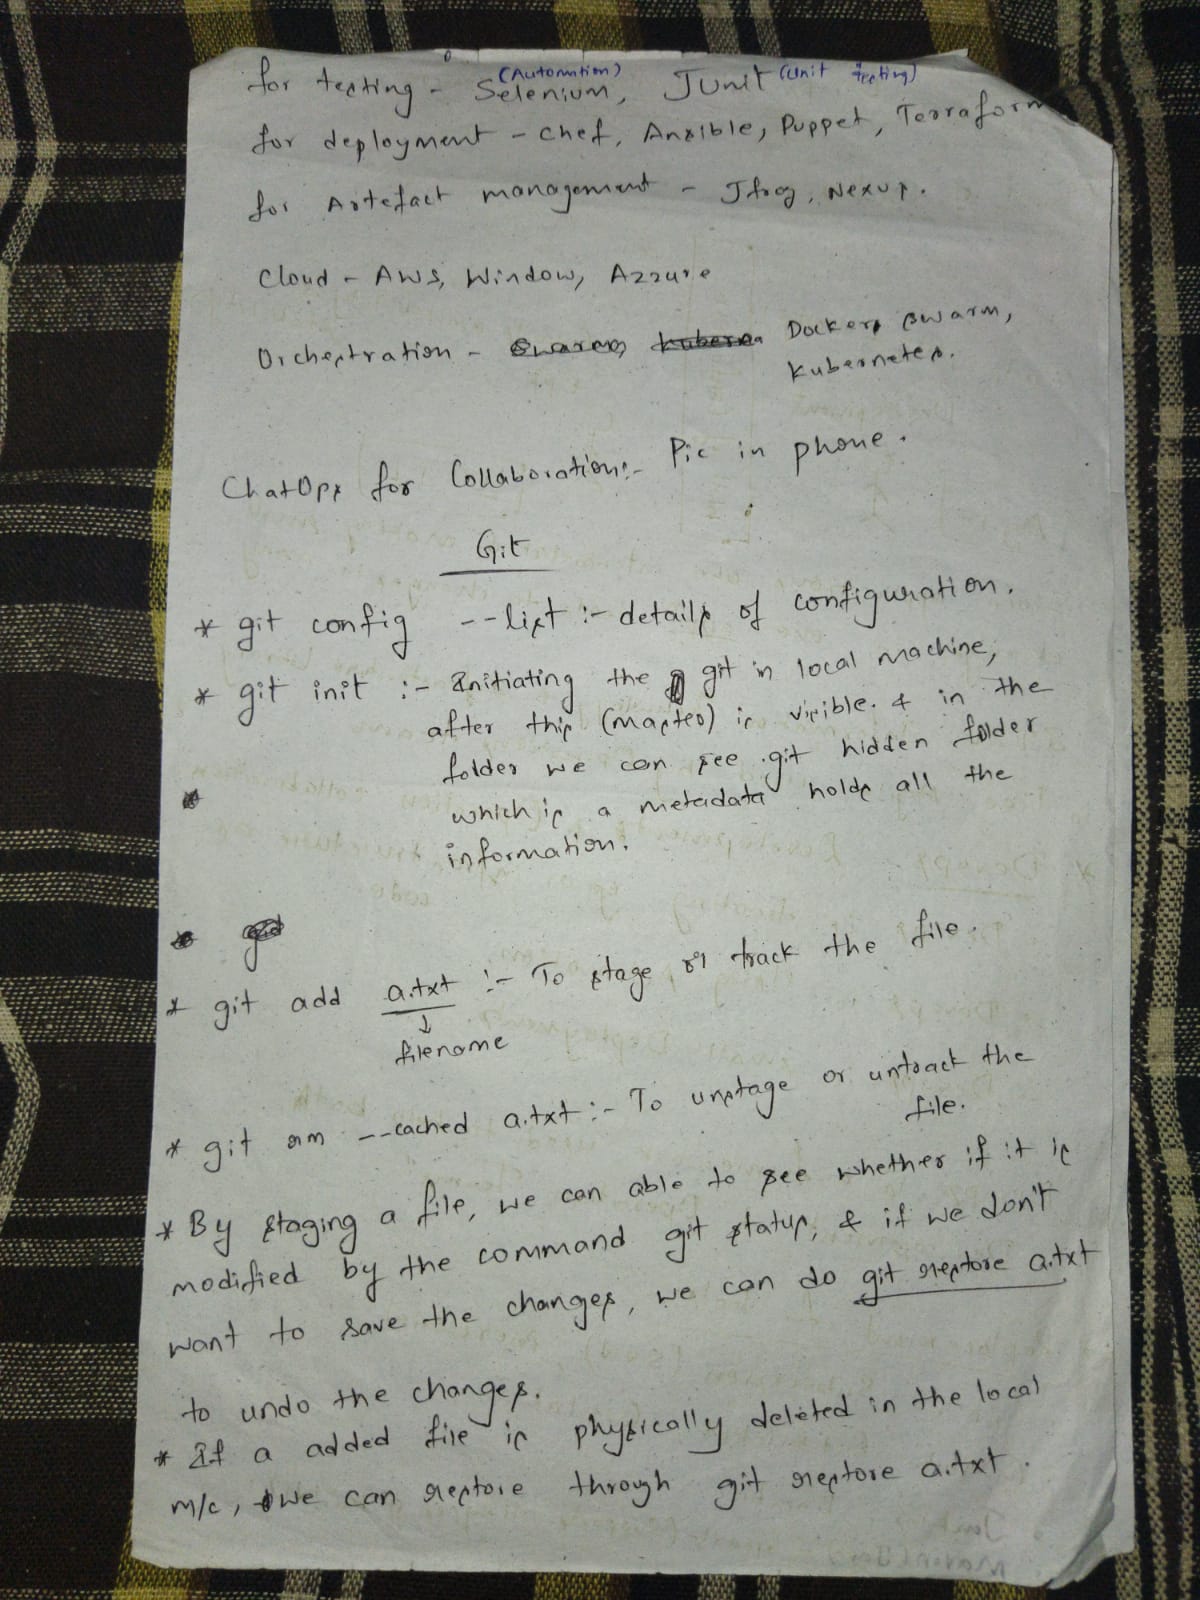 (Automation) (Unit Testing)
for testing - Selenium, JUnit
for deployment - Chef, Ansible, Puppet, Terraform
for Artefact management - Jfrog, Nexus.
Cloud - AWS, Window, Azzure
Orchestration - Swarm, Kuberne Dockers swarm,
Kubernetes.
ChatOps for Collaboration:- Pic in phone.
Git
* git config --list :- details of configuration.
* git init :- Initiating the git in local machine,
after this (master) is visible. & in the
folder we can see .git hidden folder
which is a metadata holds all the
information.
* git add a.txt :- To stage or track the file.
↓
filename
* git rm --cached a.txt :- To unstage or untrack the
file.
* By staging a file, we can able to see whether if it is
modified by the command git status, & if we don't
want to save the changes, we can do git restore a.txt
to undo the changes.
* If a added file is physically deleted in the local
m/c, we can restore through git restore a.txt.